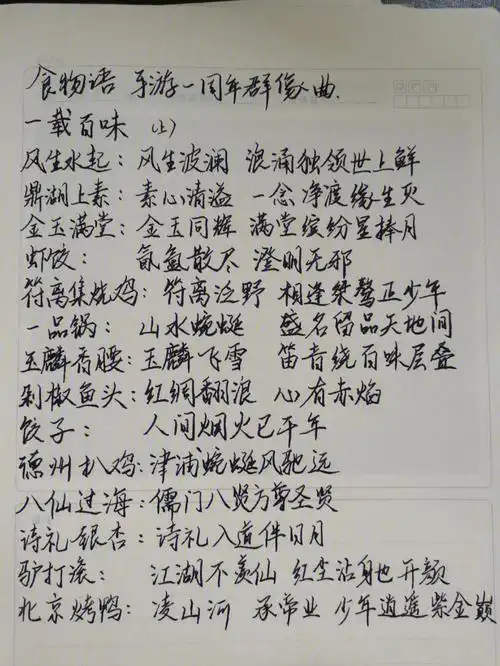 食物语 手游一周年群像曲.
一载百味 (上)
风生水起：风生波澜 浪涌独领世上鲜
鼎湖上素：素心清溢 一念净渡缘生灭
金玉满堂：金玉同辉 满堂缤纷星捧月
虾饺： 氤氲散尽 澄明无邪
符离集烧鸡：符离泛野 相逢桀骜正少年
一品锅： 山水蜿蜒 盛名留品天地间
玉麟香腰：玉麟飞雪 笛音绕百味层叠
剁椒鱼头：红绸翻浪 心有赤焰
饺子： 人间烟火已千年
德州扒鸡：津浦蜿蜒风驰远
八仙过海：儒门八贤方尊圣贤
诗礼银杏：诗礼入道伴日月
驴打滚： 江湖不羡仙 红尘沾身也开颜
北京烤鸭： 凌山河 承帝业 少年逍遥紫金巅